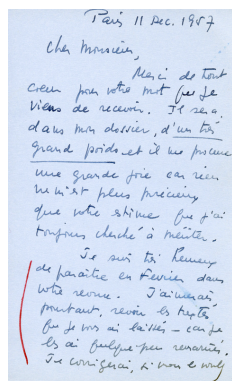 Paris 11 Dec. 1957
Cher Monsieur,
Merci de tout
cœur pour votre mot que je
viens de recevoir. Il sera
dans mon dossier, d'un très
grand poids et il me procure
une grande joie car rien
ne m'est plus précieux
que votre estime que j'ai
toujours cherché à mériter.
Je suis très heureux
de paraître en février dans
votre revue. J'aimerais,
pourtant, revoir les textes
que je vous ai laissés – car je
les ai quelque peu remaniés.
Je corrigerai, si vous le voulez